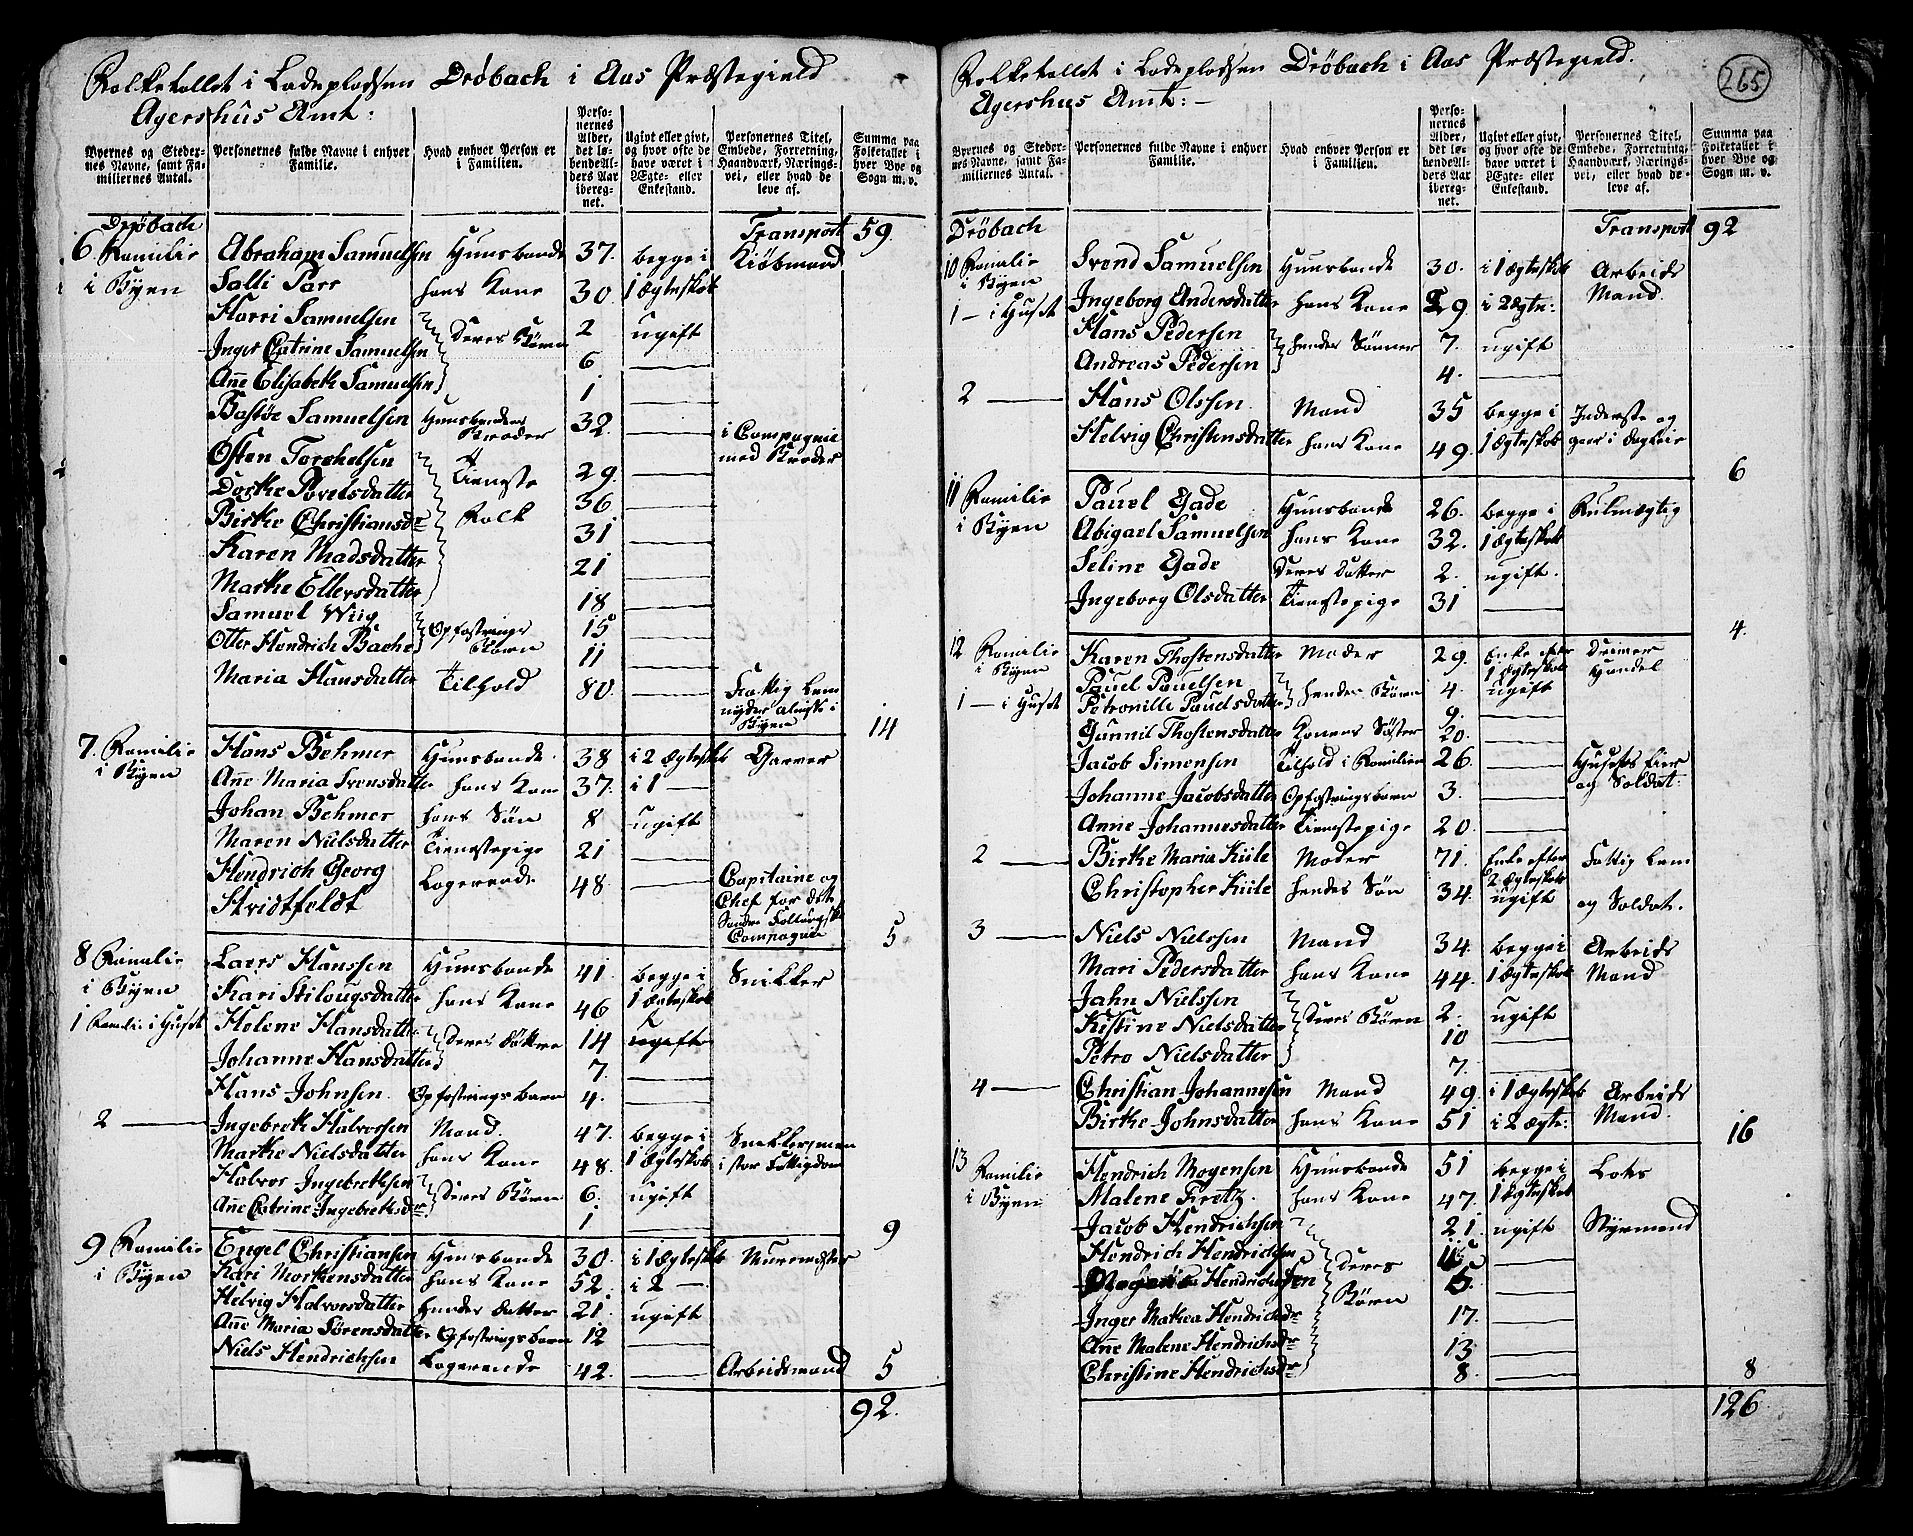 Folketallet i Ladepladsen Dröbach i Aas Præstegield
Agershus Amt:
Byernes og Stedernes Navne, samt Familiernes Antal. Personernes fulde Navne i enhver Familie. Hvad enhver Person er i Familien. Personernes Alder, det løbende Alders Aar iberegnet. Ugivt eller givt, og hvor ofte de have været i Ægte- eller Enkestand. Personernes Titel, Embede, Forretning, Haandværk, Næringsvei, eller hvad de leve af. Summa paa Folketallet i hver Bye og Sogn m. v.
Dröbach Transport 59.
6. Familie Abraham Samuelsen Huusbonde 37. begge i Kiöbmand
i Byen Salli Parr hans Kone 30. 1 ægteskab
Harri Samuelsen Deres Börn 2 ugift
Inger Catrine Samuelsen 6 —
Añe Elisabeth Samuelsen 1 —
Bastöe Samuelsen Huusbondens Broder 32. — i Compagnie med Broder
Osten Torchelsen Tieneste 29. —
Dorthe Povelsdatter Folk 36 —
Birthe Christiansdr 31 —
Karen Madsdatter 21 —
Marthe Ellersdatter 18 —
Samuel Wiig Opfostrings 15 —
Otter Hendrich Bache Börn 11 —
Maria Hansdatter Tilhold 80. — Fattig Lem nyder almisse i Byen 14
7. Familie Hans Behmer Huusbonde. 38 i 2 ægteskab Garver
i Byen Añe Maria Svensdatter hans Kone 37. i 1 —
Johan Behmer hans Sön 8 ugift
Maren Nielsdatter Tienestepige 21 —
Hendrich Georg Logerende 48 — Capitaine og
Stridtfeldt Chef for det
Söndre Follougske
Compagnie 5
8 Familie Laers Hanssen Huusbonde 41. begge i Snikker
i Byen Kari Stilougsdatter hans Kone 46 1 ægteskab
1 Familie i Huset Helene Hansdatter Deres Döttre 14 ugifte
Johanne Hansdatter 7. —
Hans Johnsen Opfostrings barn 4. —
2 — Ingebreth Halvorsen Mand. 47. begge i Snikkersmen
Marthe Nielsdatter hans Kone 48. 1 ægteskab i stor Fattigdom
Halvor Ingebrethsen Deres Börn 6. ugift
Añe Catrine Ingebrethsdr 1 — 9
9 Familie Engel Christiansen Huusbonde 30. i 1 ægteskab Muurmester
i Byen Kari Mortensdatter hans Kone 52. i 2 —
Helvig Halvorsdatter hendes Datter 21. ugift
Añe Maria Sörensdatter Opfostringsbarn 12 —
Niels Hendrichsen Logerende 42. — Arbeidsmand 5
92.
Folketallet i Ladepladsen Dröbach i Aas Præstegield.
Agershus Amt: –
265
Byernes og Stedernes Navne, samt Familiernes Antal. Personernes fulde Navne i enhver Familie. Hvad enhver Person er i Familien. Personernes Alder, det løbende Alders Aar iberegnet. Ugivt eller givt, og hvor ofte de have været i Ægte- eller Enkestand. Personernes Titel, Embede, Forretning, Haandværk, Næringsvei, eller hvad de leve af. Summa paa Folketallet i hver Bye og Sogn m. v.
Dröbach Transport 92
10 Familie Svend Samuelsen Huusbonde 30. i 1 ægteskab Arbeids
i Byen Ingeborg Andersdatter hans Kone 29. i 2 ægte: Mand.
1 — i Huset Hans Pedersen hendes Sönner 7. ugift
Andreas Pedersen 4. —
2 — Hans Olssen Mand 35 begge i Inderste og
Helvig Christensdatter hans Kone 49. 1 ægteskab gaar i dagleie 6
11 Familie Pauel Gade Huusbonde 26. begge i Fulmægtig
i Byen Abigael Samuelsen hans Kone 32. 1 ægteskab
Seline Gade Deres Datter 2. ugift.
Ingeborg Olsdatter Tienestepige 31 — 4.
12 Familie Karen Thostensdatter Moder 29. Enke efter Handel
i Byen 1 ægteskab
1 — i Huset Pauel Pauelsen hendes Börn 4. ugift
Petronille Pauelsdatter 9. —
Gunnil Thostensdatter Konens Söster 20. —
Jacob Simensen Tilhold i Familien 26. — Husets Eier og Soldat.
Johanne Jacobsdatter Opfostringsbarn 3. —
Anne Johannesdatter Tienestepige 20. —
2 — Birthe Maria Kiile Moder 71. Enke efter 2 ægteskab Fattig Lem
Christopher Kiile hendes Sön 34. ugift og Soldat.
3 — Niels Nielssen Mand 34. begge i Arbeids
Mari Pedersdatter hans Kone 44. 1 ægteskab Mand
Jahn Nielssen Deres Börn 2. ugift
Kistine Nielsdatter 10 —
Petro Nielsdatter 7. —
4 — Christian Johannesen Mand 49. i 1 ægteskab Arbeids
Birthe Johnsdatter hans Kone 51 i 2 ægte: Mand. 16
13 Familie Hendrich Mogensen Huusbonde 51 begge i Lots
i Byen Malene Firetz. hans Kone 47. 1 ægteskab
Jacob Hendrichsen Deres 21. ugift Styrmand
Hendrich Hendrichsen Börn —
Hendrichsen 5. —
Inger Mathea Hendrichsdr 17. —
Añe Malene Hendrichsdr 13 —
Christine Hendrichsdr 8. — 8
126